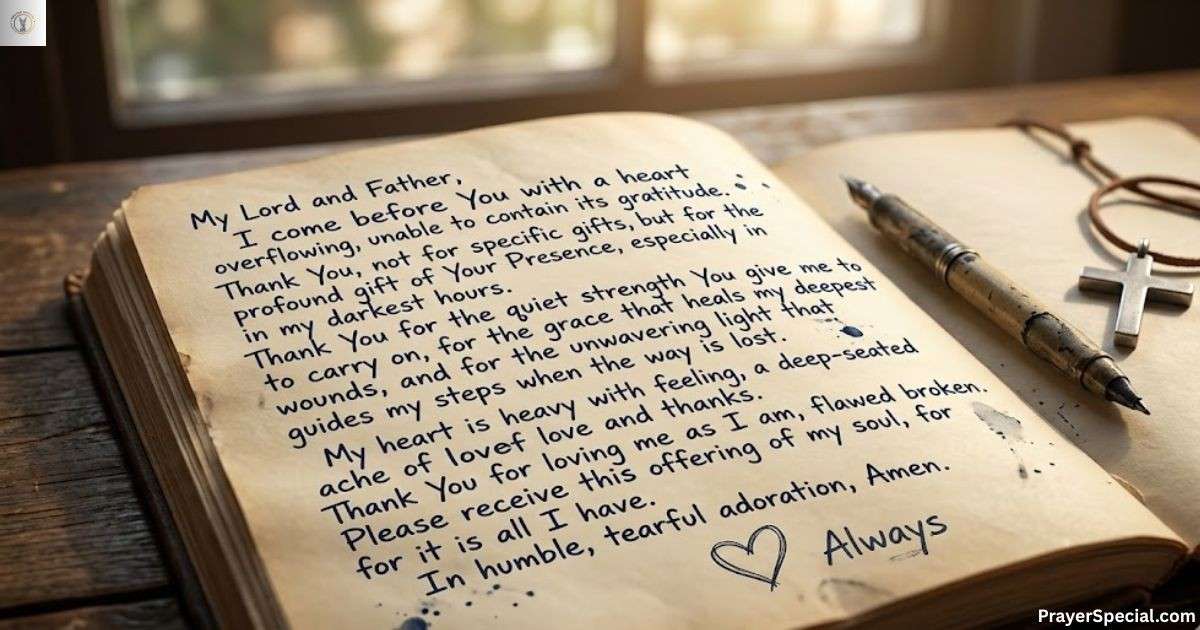 My Lord and Father,
I come before You with a heart
overflowing, unable to contain its gratitude.
Thank You, not for specific gifts, but for the
profound gift of Your Presence, especially in
in my darkest hours.
Thank You for the quiet strength You give me to
to carry on, for the grace that heals my deepest
wounds, and for the unwavering light that
guides my steps when the way is lost.
My heart is heavy with feeling, a deep-seated
ache of lovef love and thanks.
Thank You for loving me as I am, flawed broken.
Please receive this offering of my soul, for
for it is all I have.
In humble, tearful adoration, Amen.
Always
PrayerSpecial.com